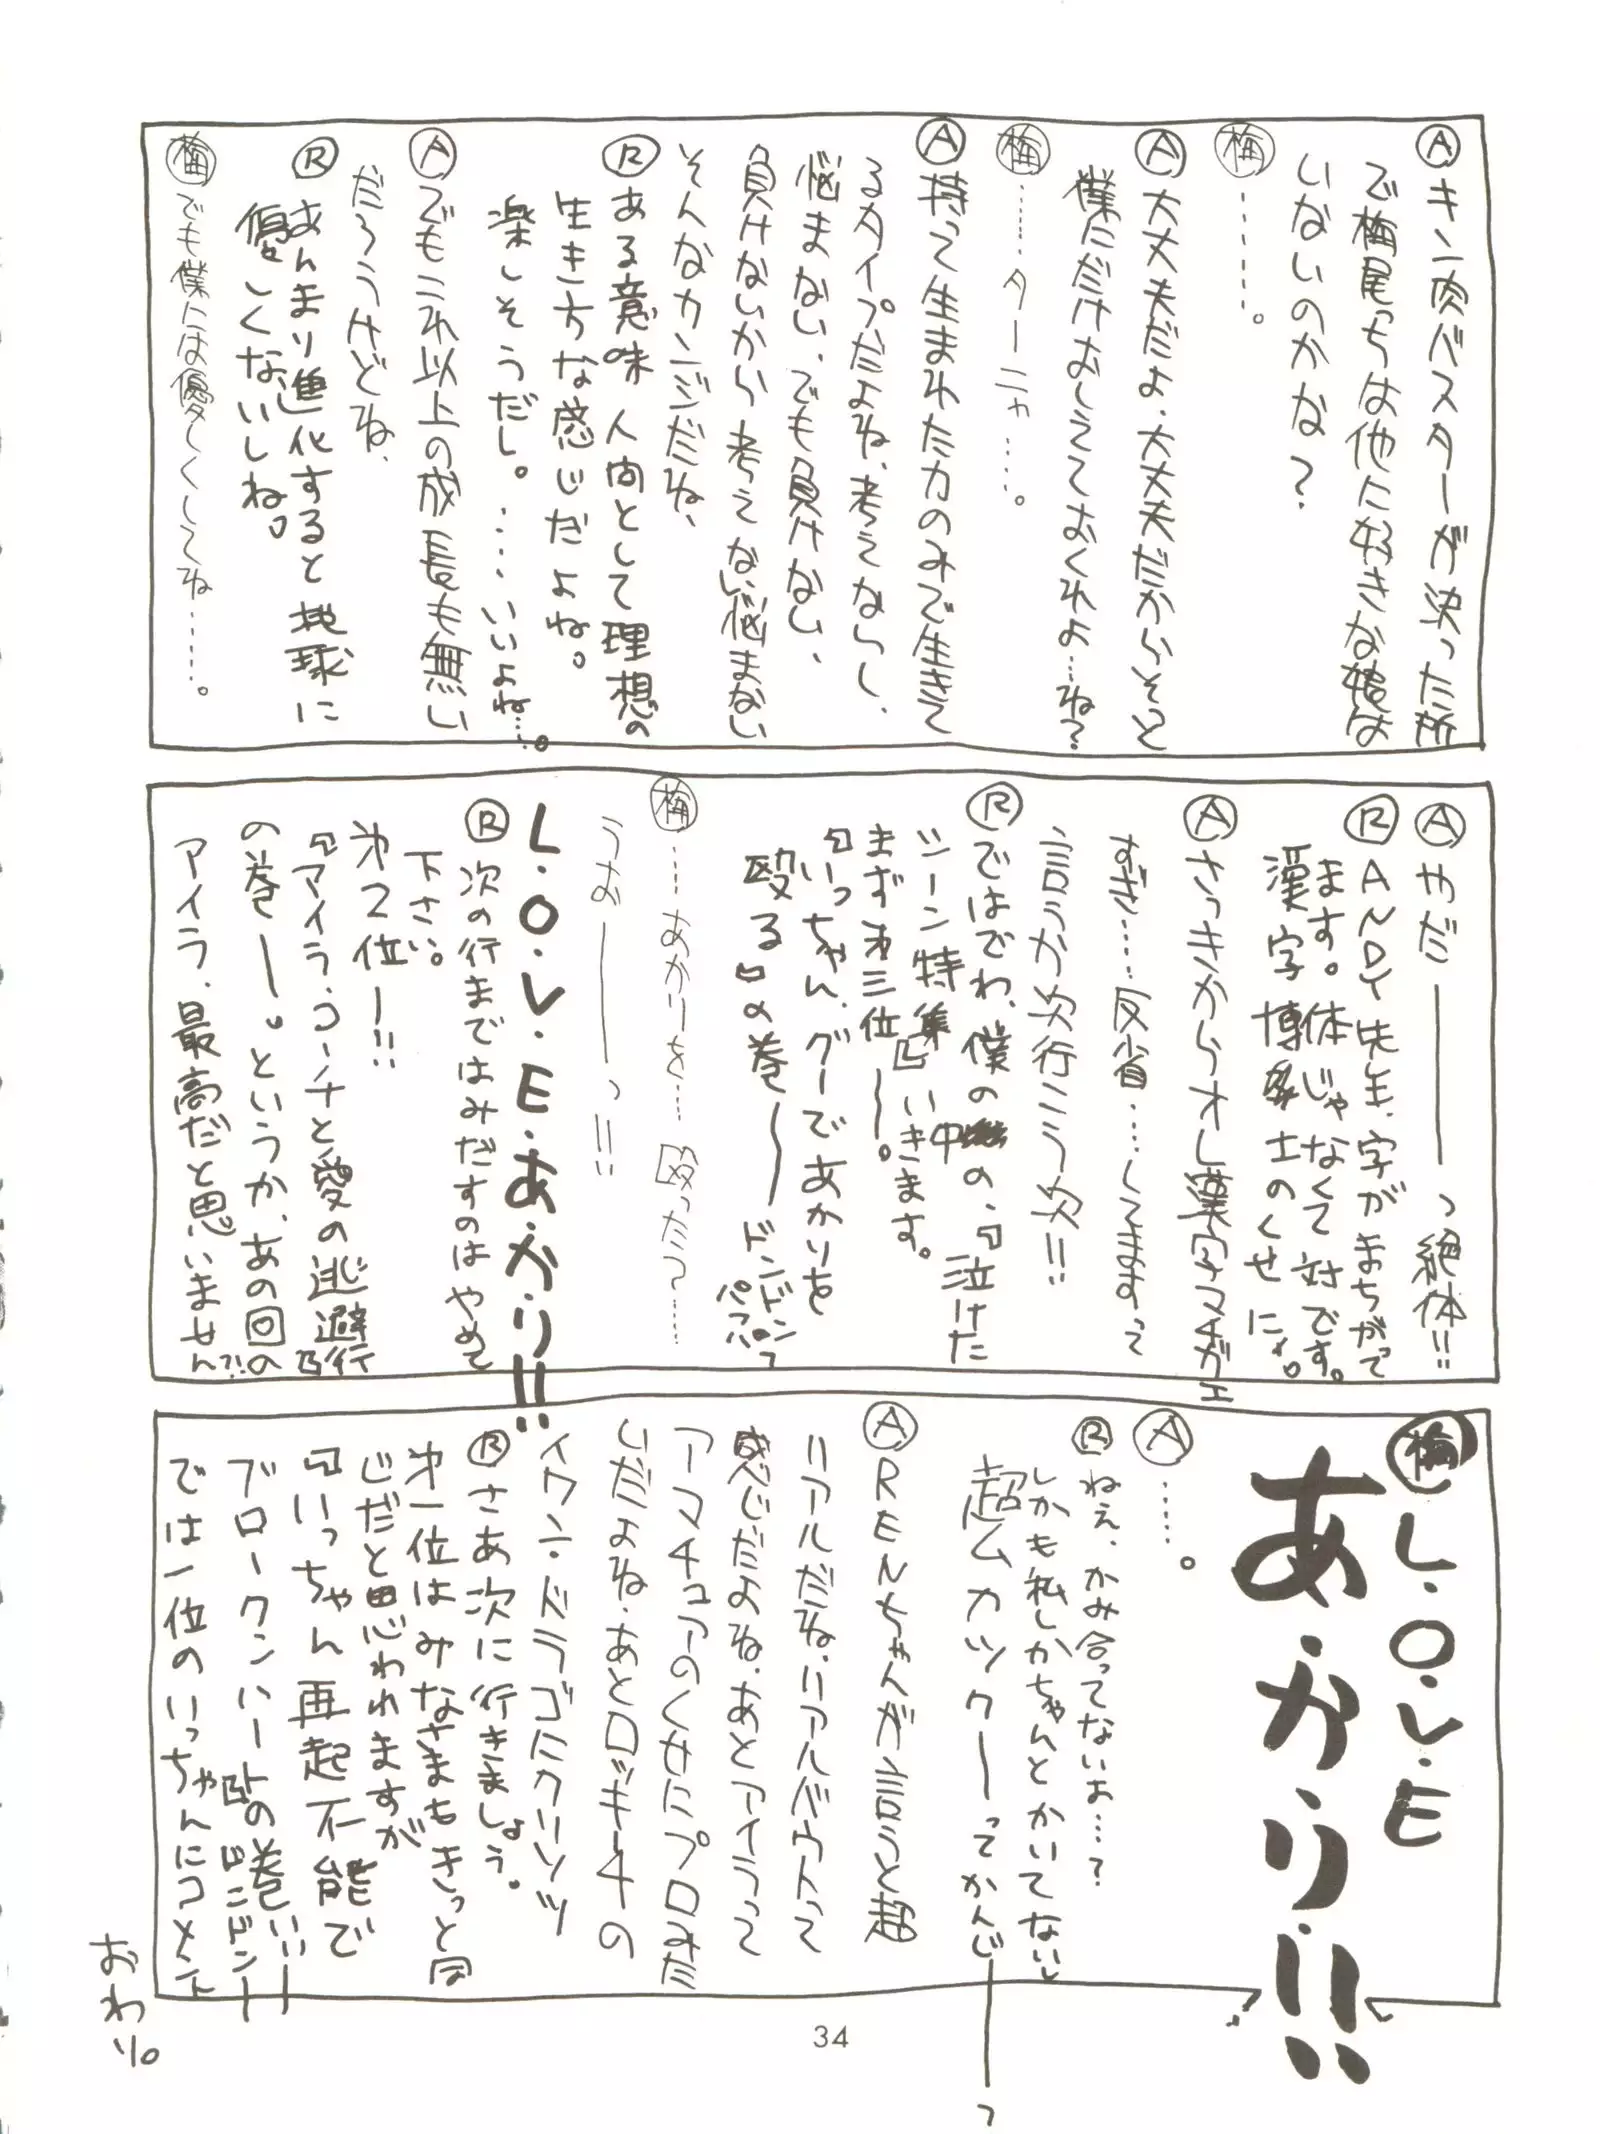 Ⓐキン肉バスターが決った所
で梅尾っちは他に好きな娘は
いないのかな？
㊢梅……。
Ⓐ大丈夫だよ、大丈夫だからそっと
僕にだけおしえておくれよ…ね？
梅……ターニャ……。
Ⓐ持って生まれた力のみで生きて
るタイプだよね、考えてないし、
悩まない、でも負けない、
負けないから考えない、悩まない
そんなカンジだね、
Ⓡある意味人向として理想の
生き方な感じだよね。
楽しそうだし。……いいよね…。
Ⓐでもこれ以上の成長も無い
だろうけどね、
Ⓡあんまり進化すると地球に
優しくないしね。
梅でも僕には優しくしてね……。
Ⓐやだ――――っ絶体!!
ⓇANDY先生、字がまちがって
ます。体じゃなくて対です。
漢字博士のくせに。
Ⓐさっきからオレ漢字マチガエ
すぎ…反省……してますって
言うか次行こう次!!
Ⓡではでわ、僕の中の、『泣けた
シーン特集』いきます。
まず㐧三位――。
『いっちゃん、グーであかりを
殴る』の巻――ドンドンっ
パフパフ
梅……あかりを…殴った？……
うお―――っ!!
L・O・V・E・あ・か・り!!
Ⓡ次の行まではみだすのはやめて
下さい。
㐧2位―!!
『アイラ、コーチと愛の逃避行』
の巻――。というか、あの回の
アイラ、最高だと思いません?!
梅L・O・V・E
あ・か・り!!
Ⓐ……。
Ⓡねぇ、かみ合ってないよ…？
しかも私しかちゃんとかいてないし
超ムカツク――ってかんじ――っ
ⒶRENちゃんが言うと超
リアルだね、リアルバウトって
感じだよね、あとアイラって
アーマチュアーのくせにプロみた
いだよね、あとロッキー4の
イワン・ドラゴにクリソツ
Ⓡさあ次に行きましょう。
㐧一位はみなさまもきっと同
じだと思われますが
『いっちゃん再起不能で
ブロークンハート』の巻ぃぃ――
ドンドン――
では一位のいっちゃんにコメント
おわり。
34